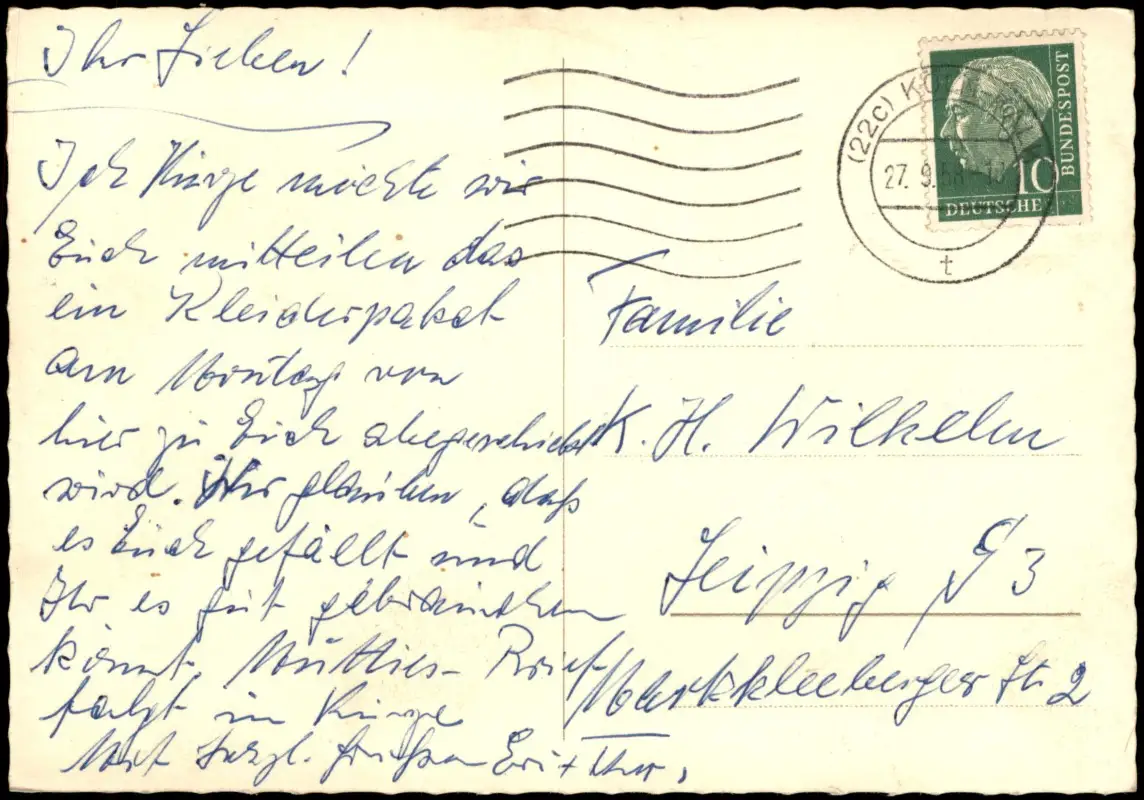 Ihr Lieben!
In Kürze möchte wir
Euch mitteilen das
ein Kleiderpaket
am Montag von
hier zu Euch abgeschickt
wird. Wir glauben, daß
es Euch gefällt und
Ihr es gut gebrauchen
könnt. Mutties- Brief
folgt in Kürze
Mit herzl. Grüßen
DEUTSCHE
BUNDESPOST
10
(22c) KÖLN
27. 9.58-10
t
Familie
K. H. Wilhelm
Leipzig S 3
Markkleeberger Str 2